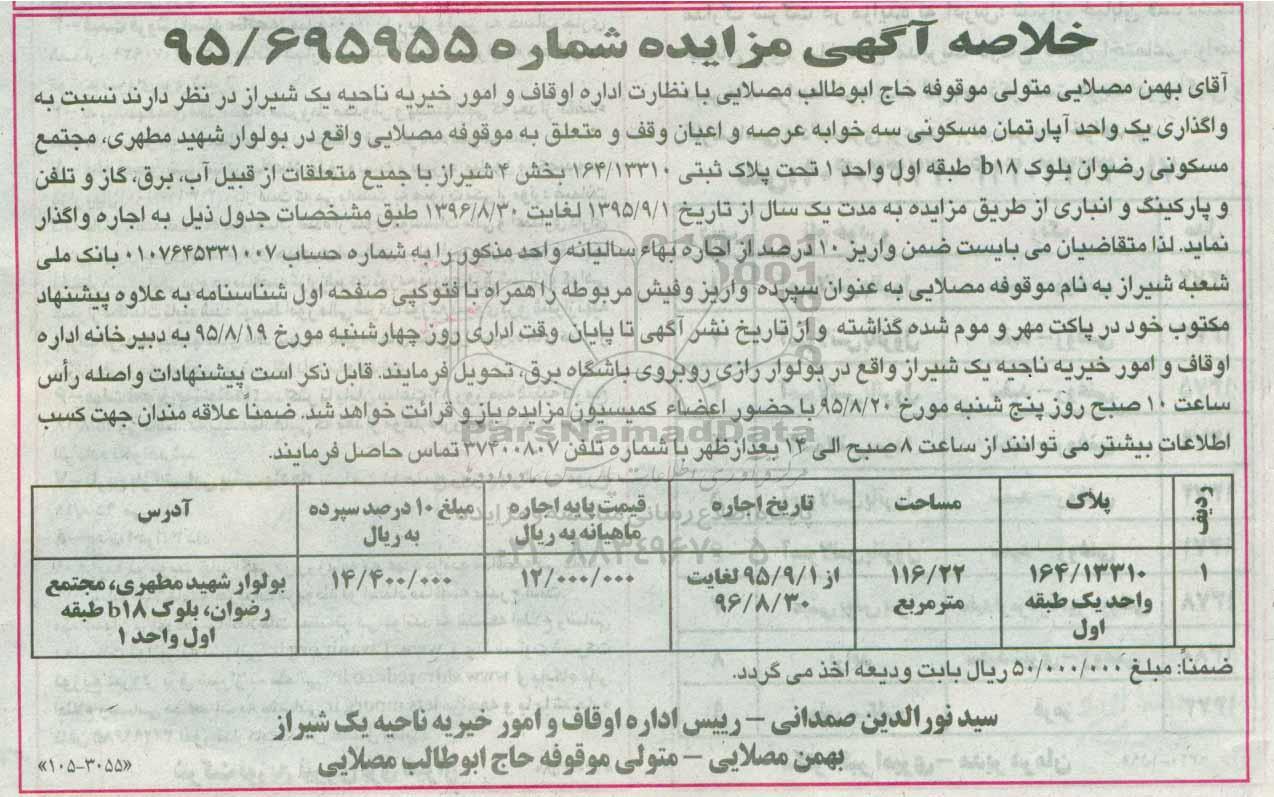 خلاصه آگهی مزایده شماره ۹۵/۶۹۵۹۵۵
آقای بهمن مصلایی متولی موقوفه حاج ابوطالب مصلایی با نظارت اداره اوقاف و امور خیریه ناحیه یک شیراز در نظر دارند نسبت به
واگذاری یک واحد آپارتمان مسکونی سه خوابه عرصه و اعیان وقف و متعلق به موقوفه مصلایی واقع در بولوار شهید مطهری، مجتمع
مسکونی رضوان بلوک b۱۸ طبقه اول واحد ۱ تحت پلاک ثبتی ۱۶۴/۱۳۳۱۰ بخش ۴ شیراز با جمیع متعلقات از قبیل آب، برق، گاز و تلفن
و پارکینگ و انباری از طریق مزایده به مدت یک سال از تاریخ ۱۳۹۵/۹/۱ لغایت ۱۳۹۶/۸/۳۰ طبق مشخصات جدول ذیل به اجاره واگذار
نماید. لذا متقاضیان می بایست ضمن واریز ۱۰ درصد از اجاره بهاء سالیانه واحد مذکور را به شماره حساب ۰۱۰۷۶۴۵۳۳۱۰۰۷ بانک ملی
شعبه شیراز به نام موقوفه مصلایی به عنوان سپرده واریز و فیش مربوطه را همراه با فتوکپی صفحه اول شناسنامه به علاوه پیشنهاد
مکتوب خود در پاکت مهر و موم شده گذاشته و از تاریخ نشر آگهی تا پایان وقت اداری روز چهارشنبه مورخ ۹۵/۸/۱۹ به دبیرخانه اداره
اوقاف و امور خیریه ناحیه یک شیراز واقع در بولوار رازی روبروی باشگاه برق، تحویل فرمایند. قابل ذکر است پیشنهادات واصله رأس
ساعت ۱۰ صبح روز پنج شنبه مورخ ۹۵/۸/۲۰ با حضور اعضاء کمیسیون مزایده باز و قرائت خواهد شد. ضمناً علاقه مندان جهت کسب
اطلاعات بیشتر می توانند از ساعت ۸ صبح الی ۱۴ بعدازظهر با شماره تلفن ۳۷۳۰۰۸۰۷ تماس حاصل فرمایند.
ParsNamadData
ردیف پلاک مساحت تاریخ اجاره قیمت پایه اجاره ماهیانه به ریال مبلغ ۱۰ درصد سپرده به ریال آدرس
۱ ۱۶۴/۱۳۳۱۰ واحد یک طبقه اول ۱۱۶/۲۲ مترمربع از ۹۵/۹/۱ لغایت ۹۶/۸/۳۰ ۱۲/۰۰۰/۰۰۰ ۱۴/۴۰۰/۰۰۰ بولوار شهید مطهری، مجتمع رضوان، بلوک b۱۸ طبقه اول واحد ۱
ضمناً: مبلغ ۵۰/۰۰۰/۰۰۰ ریال بابت ودیعه اخذ می گردد.
سید نورالدین صمدانی – رییس اداره اوقاف و امور خیریه ناحیه یک شیراز
بهمن مصلایی – متولی موقوفه حاج ابوطالب مصلایی
«۱۰۵-۳۰۵۵»